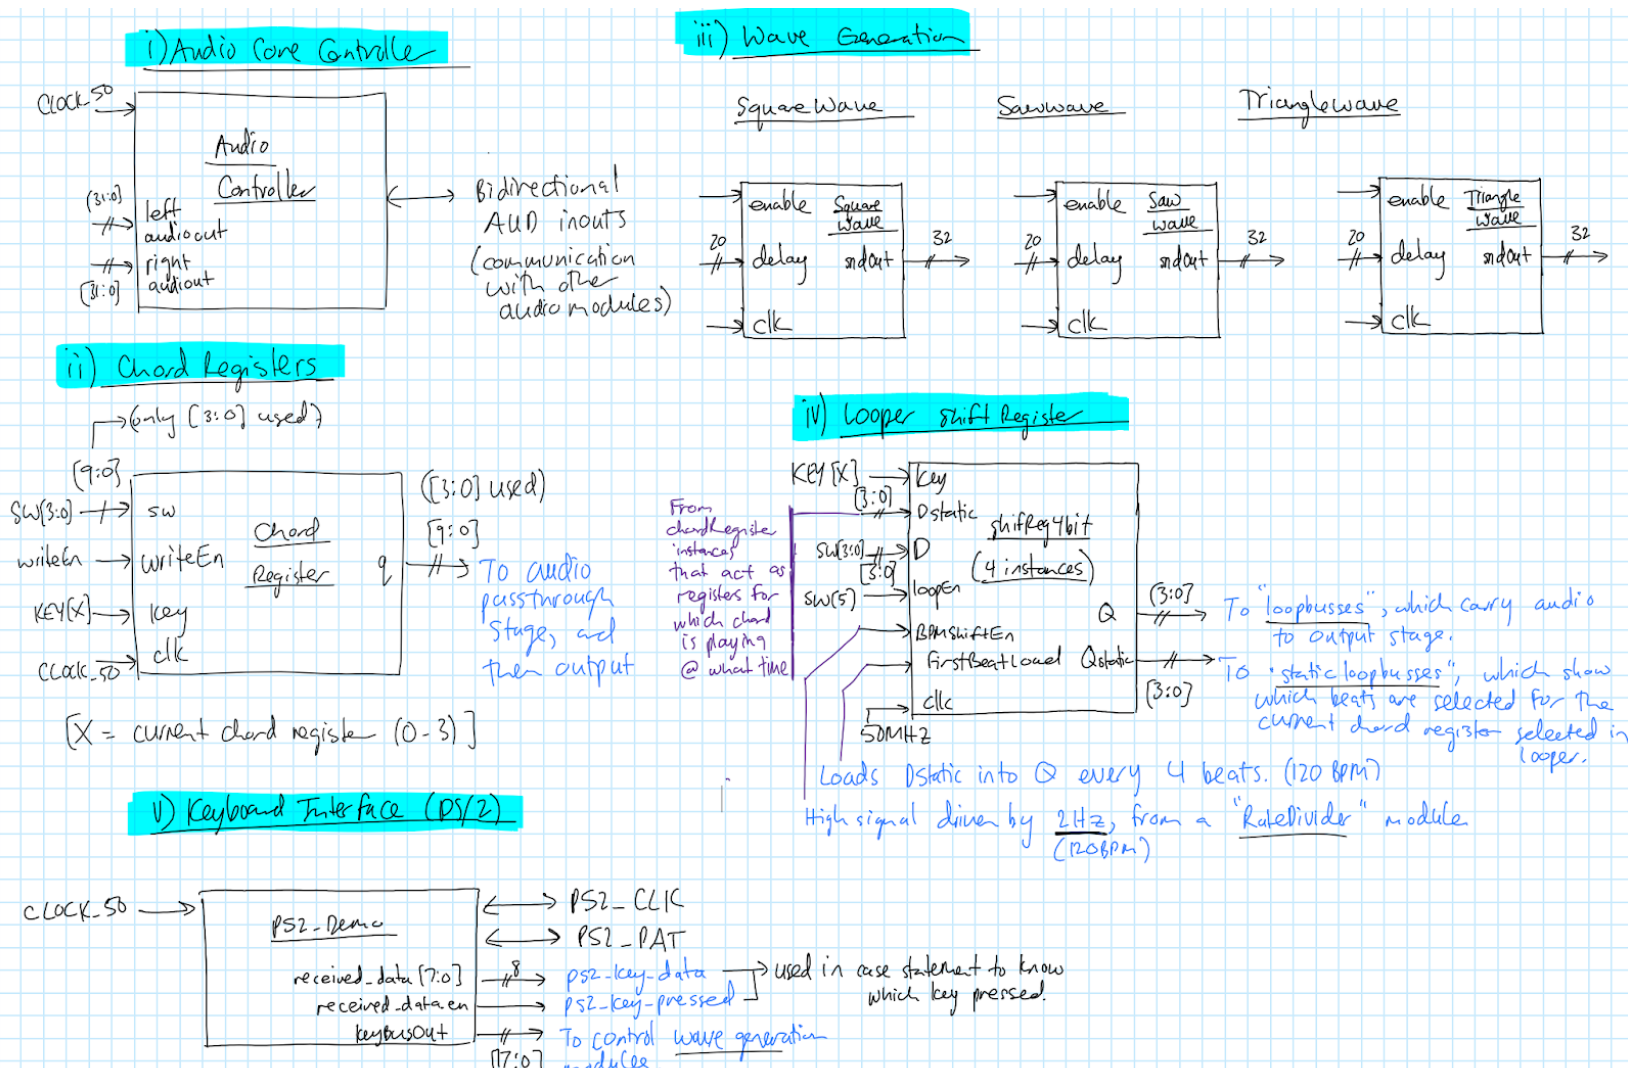 i) Audio Core Controller
CLOCK_50
Audio
Controller
[31:0]
left
audioout
right
audiout
[31:0]
Bidirectional
AUD inouts
(communication
with other
audio modules)
ii) Chord Registers
(only [3:0] used)
[9:0]
SW[3:0]
sw
writeEn
writeEn
KEY[X]
key
CLOCK_50
clk
Chord
Register
q
([3:0] used)
[9:0]
To audio
passthrough
stage, and
then output
[X = current chord register (0-3)]
iii) Wave Generation
SquareWave
Sawwave
Trianglewave
enable
Square
wave
20
delay
sndOut
32
clk
enable
Saw
wave
20
delay
sndOut
32
clk
enable
Triangle
wave
20
delay
sndOut
32
clk
iv) Looper Shift Register
KEY[X]
key
[3:0]
Dstatic
SW[3:0]
D
[3:0]
SW(5)
loopEn
BPMShiftEn
FirstBeatLoad
clk
50MHz
shifReg4bit
(4 instances)
Q
Qstatic
(3:0]
[3:0)
From
chordRegister
instances
that act as
registers for
which chord
is playing
@ what time
To "loopbusses", which carry audio
to output stage.
To "static loopbusses", which show
which beats are selected for the
current chord register selected in
looper.
Loads Dstatic into Q every 4 beats. (120 BPM)
High signal driven by 2Hz, from a "RateDivider" module
(120BPM)
v) Keyboard Interface (PS/2)
CLOCK_50
PS2_Demo
PS2_CLK
PS2_DAT
received_data [7:0]
8
ps2_key_data
received_data_en
ps2_key_pressed
used in case statement to know
which key pressed.
keybusOut
[17:0]
To control wave generation
modules